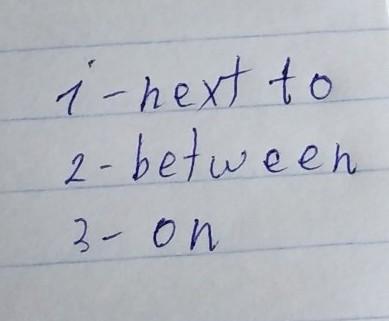 1 - next to
2 - between
3 - on